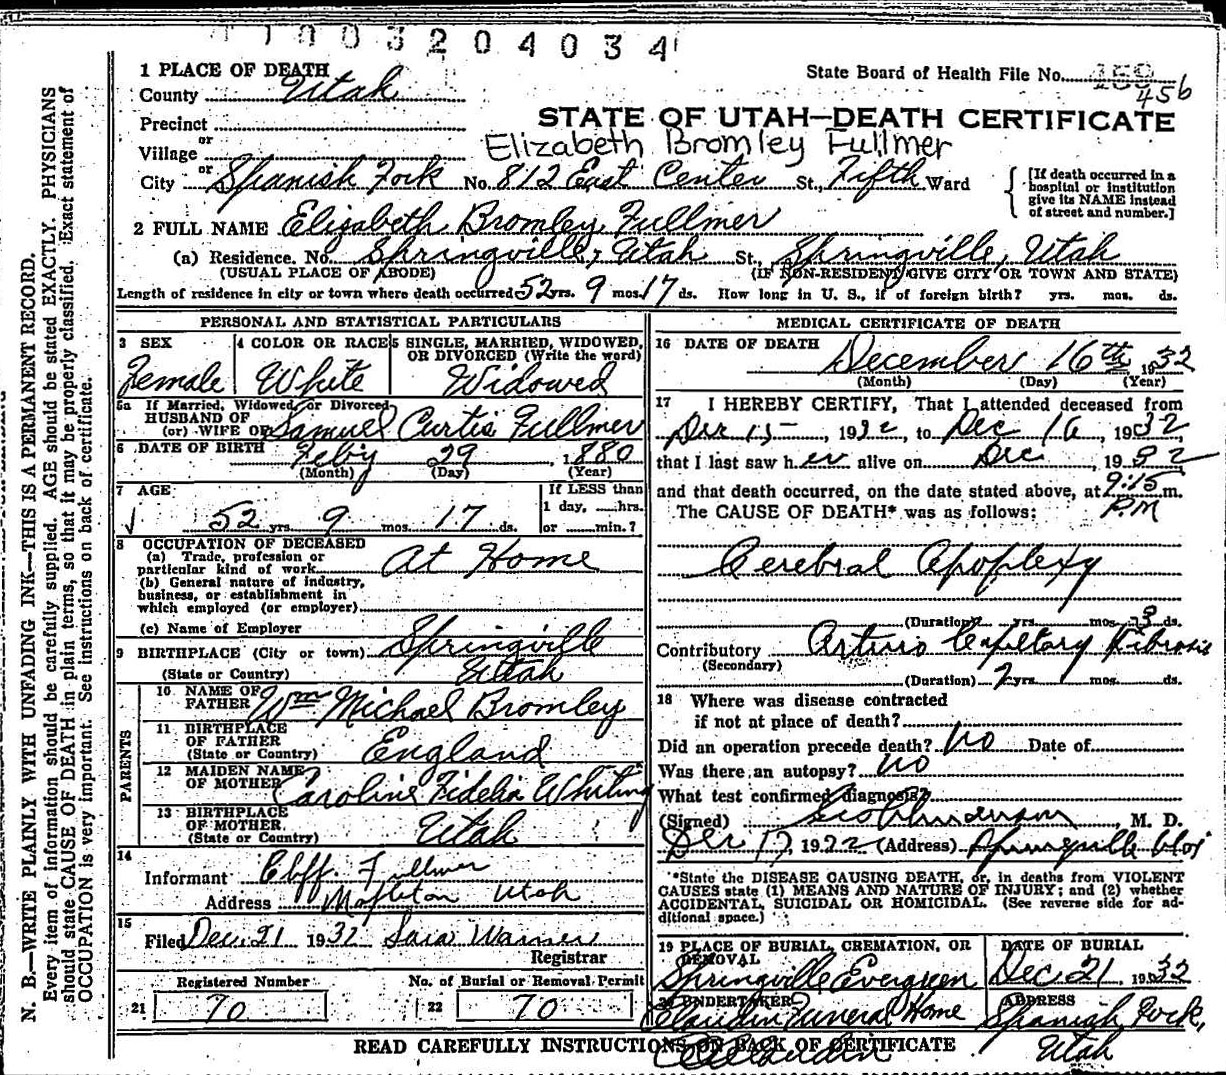 1003204034
1 PLACE OF DEATH
State Board of Health File No. 159
456
County Utah
STATE OF UTAH—DEATH CERTIFICATE
Precinct
or
Village
Elizabeth Bromley Fullmer
or
City Spanish Fork No. 812 East Center St., Fifth Ward
[If death occurred in a hospital or institution give its NAME instead of street and number.]
2 FULL NAME Elizabeth Bromley Fullmer
(a) Residence. No. Springville, Utah St., Springville, Utah
(USUAL PLACE OF ABODE) (IF NON-RESIDENT GIVE CITY OR TOWN AND STATE)
Length of residence in city or town where death occurred 52 yrs. 9 mos. 17 ds. How long in U. S., if of foreign birth? yrs. mos. ds.
PERSONAL AND STATISTICAL PARTICULARS
3 SEX
Female
4 COLOR OR RACE
White
5 SINGLE, MARRIED, WIDOWED,
OR DIVORCED (Write the word)
Widowed
5a If Married, Widowed, or Divorced
HUSBAND OF
(or) WIFE OF Samuel Curtis Fullmer
6 DATE OF BIRTH Feby 29, 1880
(Month) (Day) (Year)
7 AGE
52 yrs. 9 mos. 17 ds.
If LESS than
1 day, hrs.
or min.?
8 OCCUPATION OF DECEASED
(a) Trade, profession or
particular kind of work At Home
(b) General nature of industry,
business, or establishment in
which employed (or employer)
(c) Name of Employer
9 BIRTHPLACE (City or town) Springville
(State or Country) Utah
PARENTS
10 NAME OF
FATHER Wm Michael Bromley
11 BIRTHPLACE
OF FATHER
(State or Country) England
12 MAIDEN NAME
OF MOTHER Caroline Fidelia Whiting
13 BIRTHPLACE
OF MOTHER
(State or Country) Utah
14
Informant Fullmer
Address Mapleton Utah
15
Filed Dec. 21 1932 Sara Warner
Registrar
Registered Number
21 70
No. of Burial or Removal Permit
22 70
MEDICAL CERTIFICATE OF DEATH
16 DATE OF DEATH
December 16th 1932
(Month) (Day) (Year)
17 I HEREBY CERTIFY, That I attended deceased from
Dec 15, 1932, to Dec 16, 1932,
that I last saw her alive on Dec 1932
and that death occurred, on the date stated above, at 9:15 m.
PM
The CAUSE OF DEATH* was as follows:
Cerebral Apoplexy
(Duration) yrs. mos. 3 ds.
Contributory Capillary Fibrosis
(Secondary)
(Duration) 2 yrs. mos. ds.
18 Where was disease contracted
if not at place of death?
Did an operation precede death? No Date of
Was there an autopsy? No
What test confirmed diagnosis?
(Signed) Anderson, M. D.
Dec 17, 1932 (Address) Springville
*State the DISEASE CAUSING DEATH, or, in deaths from VIOLENT
CAUSES state (1) MEANS AND NATURE OF INJURY; and (2) whether
ACCIDENTAL, SUICIDAL OR HOMICIDAL. (See reverse side for ad-
ditional space.)
19 PLACE OF BURIAL, CREMATION, OR
REMOVAL
Springville Evergreen
DATE OF BURIAL
Dec 21 1932
20 UNDERTAKER
Claudin Funeral Home
ADDRESS
Spanish Fork,
Utah
READ CAREFULLY INSTRUCTIONS ON BACK OF CERTIFICATE
N. B.—WRITE PLAINLY WITH UNFADING INK—THIS IS A PERMANENT RECORD.
Every item of information should be carefully supplied. AGE should be stated EXACTLY. PHYSICIANS
should state CAUSE OF DEATH in plain terms, so that it may be properly classified. Exact statement of
OCCUPATION is very important. See instructions on back of certificate.